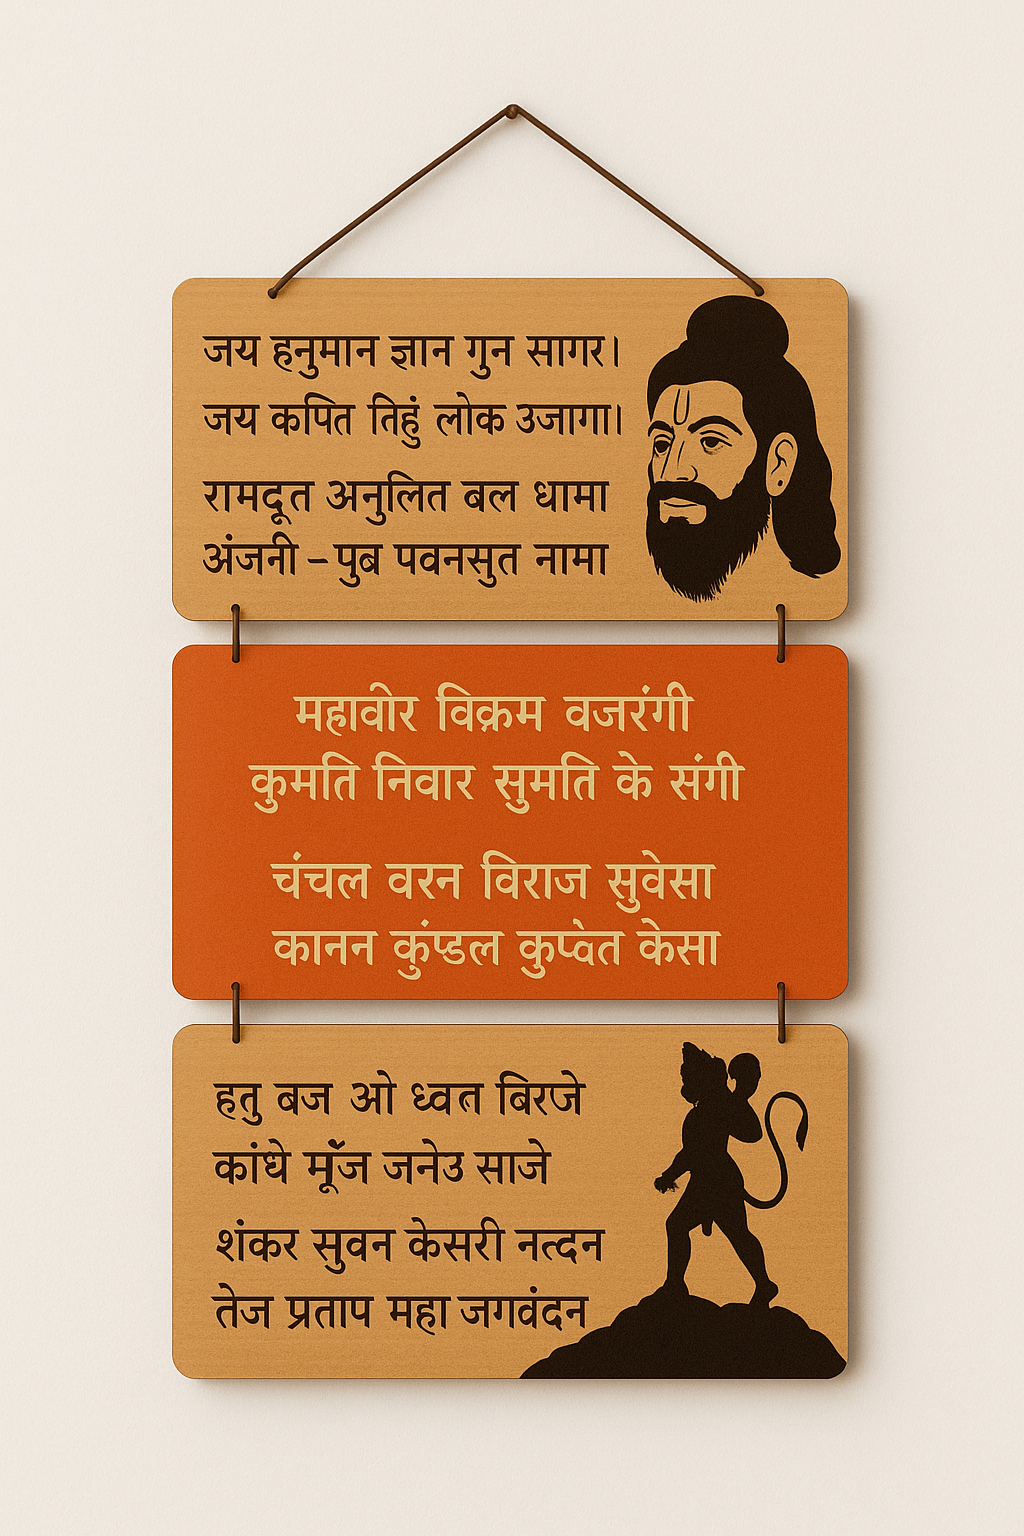 जय हनुमान ज्ञान गुन सागर।
जय कपित तिहुं लोक उजागा।
रामदूत अनुलित बल धामा
अंजनी – पुब पवनसुत नामा
महावोर विक्रम वजरंगी
कुमति निवार सुमति के संगी
चंचल वरन विराज सुवेसा
कानन केसा
हतु बज ओ ध्वत बिरजे
कांधे जनेउ साजे
शंकर सुवन केसरी नत्दन
तेज प्रताप महा जगवंदन